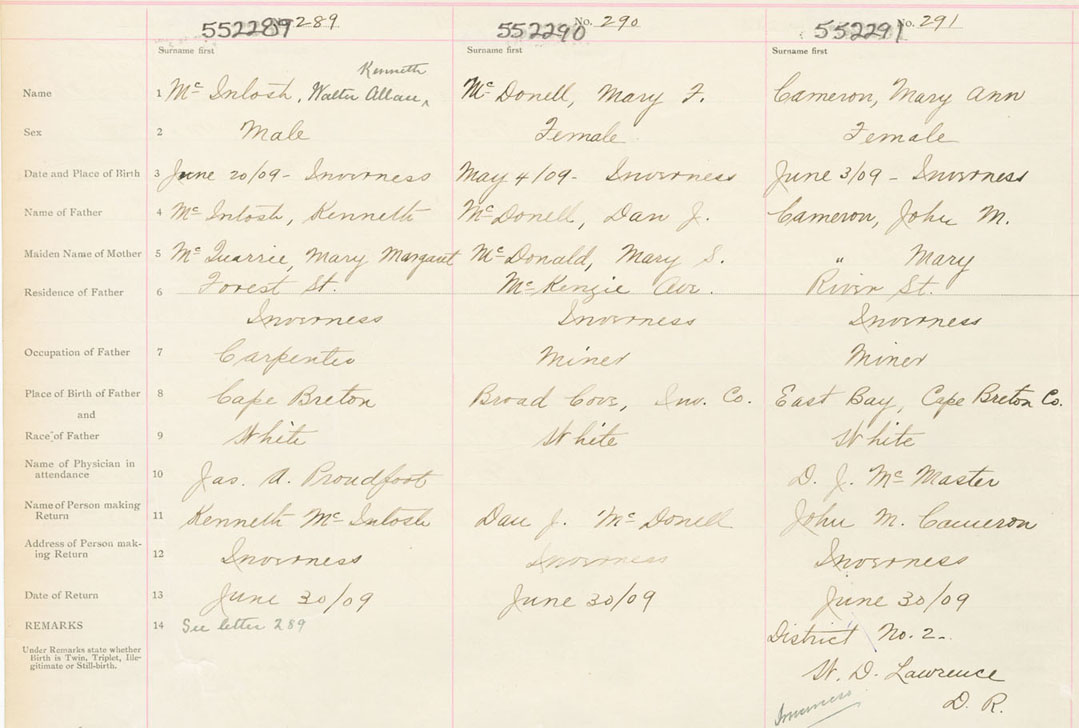 552289 No. 289 552290 No. 290 552291 No. 291
Surname first Surname first Surname first
Kenneth
Name 1 Mc Intosh, Walter Allan ^ Mc Donell, Mary F. Cameron, Mary Ann
Sex 2 Male Female Female
Date and Place of Birth 3 June 20/09 - Inverness May 4/09 - Inverness June 3/09 - Inverness
Name of Father 4 Mc Intosh, Kenneth Mc Donell, Dan J. Cameron, John M.
Maiden Name of Mother 5 Mc Quarrie, Mary Margaret Mc Donald, Mary S. " Mary
Residence of Father 6 Forest St. Mc Kenzie Ave. River St.
Inverness Inverness Inverness
Occupation of Father 7 Carpenter Miner Miner
Place of Birth of Father 8 Cape Breton Broad Cove, Inv. Co. East Bay, Cape Breton Co.
and
Race of Father 9 White White White
Name of Physician in
attendance 10 Jas. A. Proudfoot D. J. Mc Master
Name of Person making
Return 11 Kenneth Mc Intosh Dan J. Mc Donell John M. Cameron
Address of Person mak-
ing Return 12 Inverness Inverness Inverness
Date of Return 13 June 30/09 June 30/09 June 30/09
REMARKS 14 See letter 289 District No. 2
Under Remarks state whether
Birth is Twin, Triplet, Ille-
gitimate or Still-birth.
W. D. Lawrence
Inverness D. R.